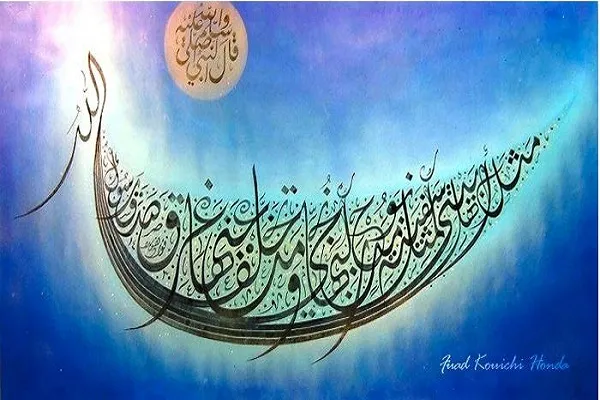 قال النبي
صلى الله عليه
وسلم
مثل أهل بيتي مثل سفينة نوح من ركبها نجا ومن تخلف عنها غرق صدق رسول الله
Fuad Kouichi Honda